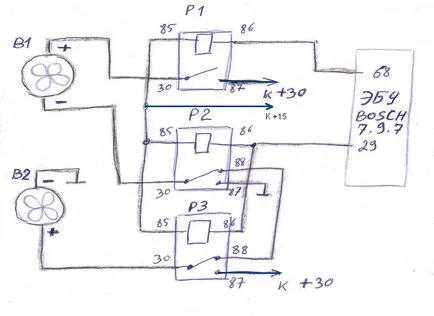 P1
85
86
B1
+
-
30
87
K +30
68
ЭБУ
BOSCH
7.9.7
29
K +15
P2
85
86
88
30
87
B2
-
+
P3
85
86
30
88
87
K +30